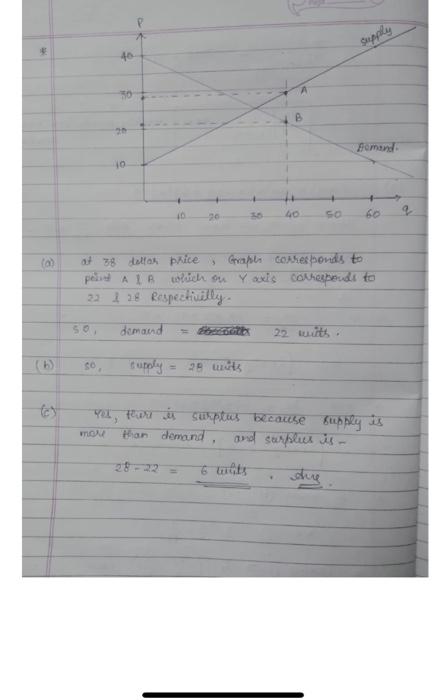 P
*
Supply
40
30
A
B
20
Demand.
10
10 20 30 40 50 60 q
(a) at 38 dollar price, Graph corresponds to
point A & B which on Y axis corresponds to
22 & 28 Respectivilly.
so, demand = 22 units.
(b) so, supply = 28 units
(c) Yes, there is surplus because supply is
more than demand, and surplus is -
28-22 = 6 units. Ans.